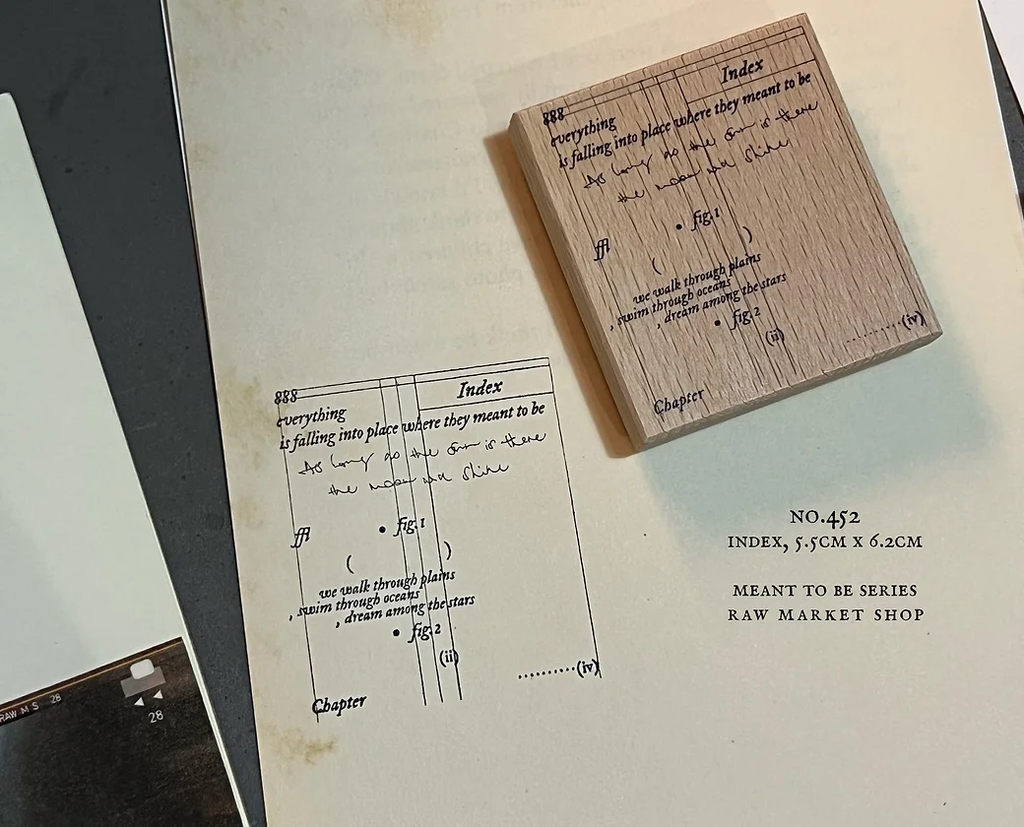 888
Index
everything
is falling into place where they meant to be
As long as the sun is there
the moon will shine
• fig.1
ffl
(
)
we walk through plains
, swim through oceans
, dream among the stars
• fig.2
(ii)
.........(iv)
Chapter
888
Index
everything
is falling into place where they meant to be
As long as the sun is there
the moon will shine
ffl
• fig.1
(
)
we walk through plains
, swim through oceans
, dream among the stars
• fig.2
(ii)
..........(iv)
Chapter
NO.452
INDEX, 5.5CM X 6.2CM
MEANT TO BE SERIES
RAW MARKET SHOP
RAW M S 28
28